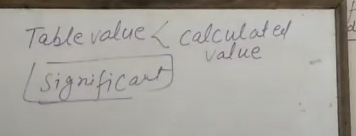 Table value < calculated
value
Significant